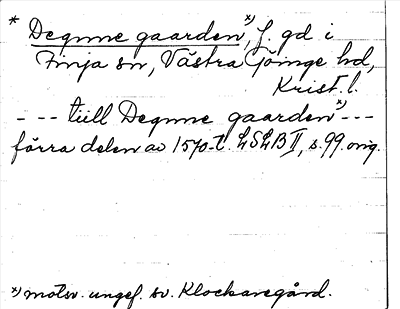 * Degnne gaarden *), f. gd i
Finja sn, Västra Göinge hd,
Krist. l.
- - - tiill Degnne gaarden *) - - -
förra delen av 1570-t. LSLB II, s. 99. orig.
*) motsv. ungef. sv. Klockaregård.